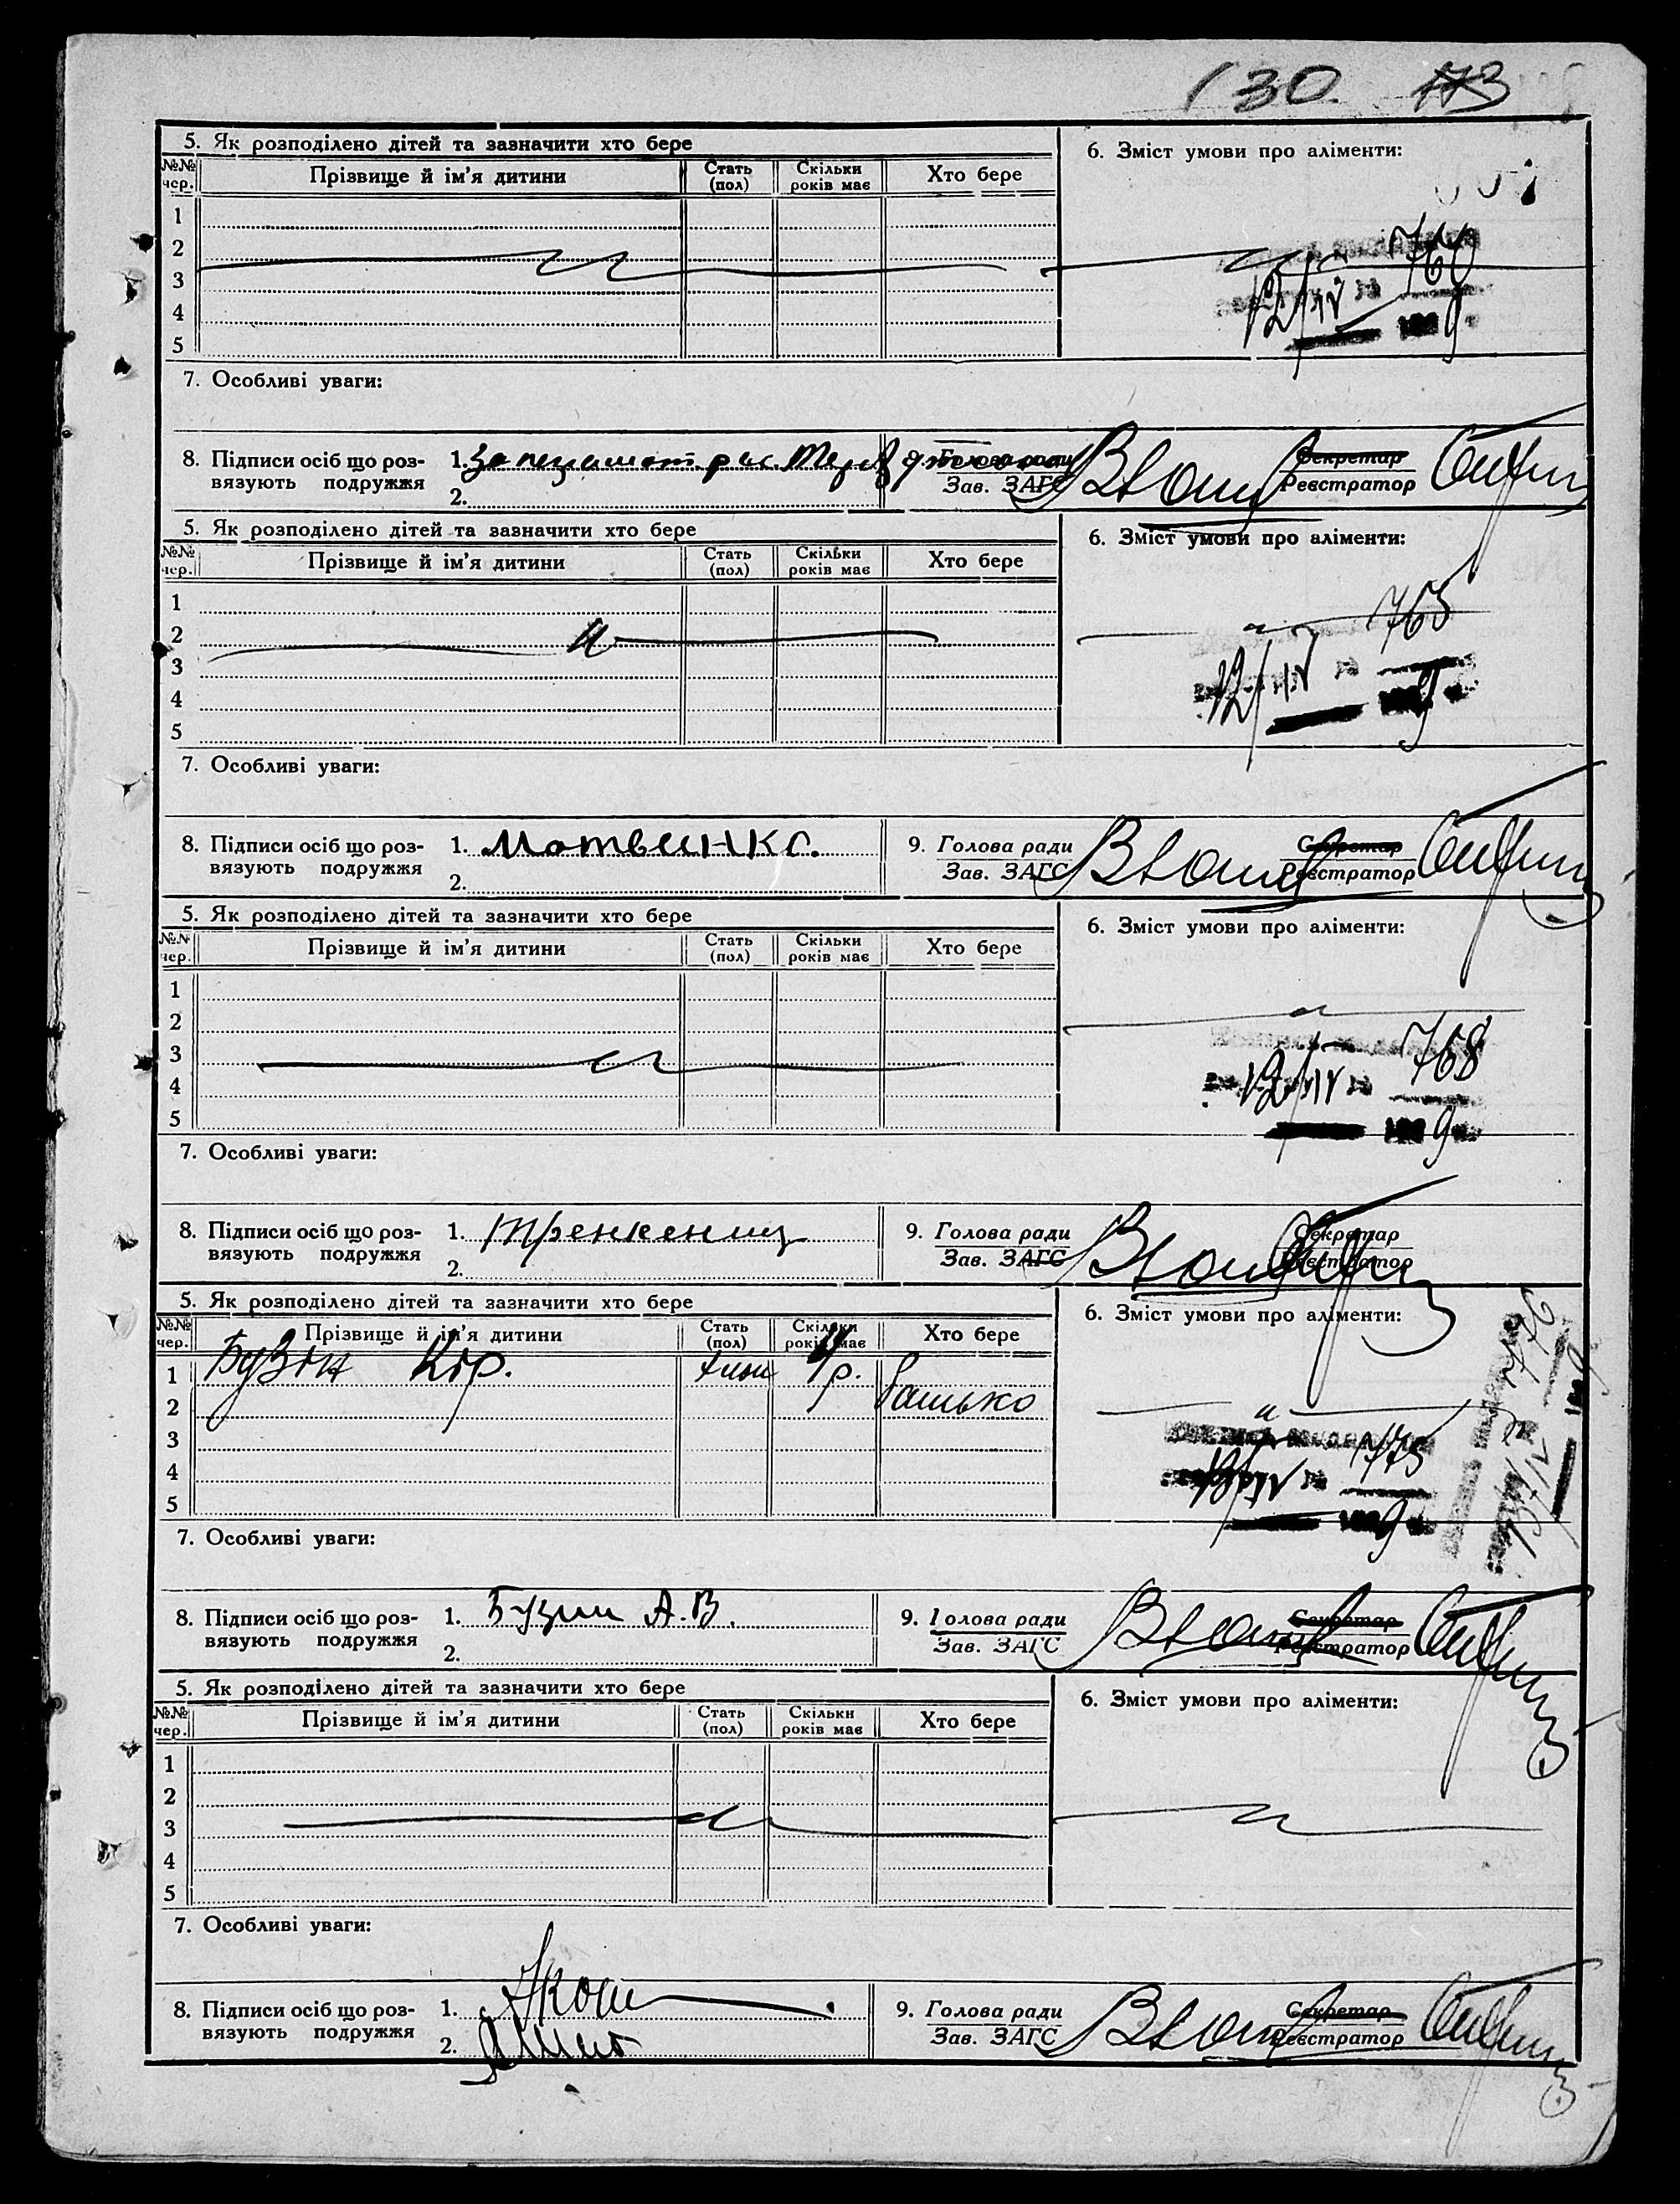 130. 173
5. Як розподілено дітей та зазначити хто бере
6. Зміст умови про аліменти:
№№ чер. Прізвище й ім'я дитини Стать (пол) Скільки років має Хто бере
1
2
3
4
5
769
12/IV
9
7. Особливі уваги:
8. Підписи осіб що роз-
вязують подружжя
1. За
2.
Голова ради
Зав. ЗАГС
Секретар
Реєстратор
5. Як розподілено дітей та зазначити хто бере
6. Зміст умови про аліменти:
№№ чер. Прізвище й ім'я дитини Стать (пол) Скільки років має Хто бере
1
2
3
4
5
765
12/IV
9
7. Особливі уваги:
8. Підписи осіб що роз-
вязують подружжя
1. Матвеинко.
2.
9. Голова ради
Зав. ЗАГС
Секретар
Реєстратор
5. Як розподілено дітей та зазначити хто бере
6. Зміст умови про аліменти:
№№ чер. Прізвище й ім'я дитини Стать (пол) Скільки років має Хто бере
1
2
3
4
5
768
12/IV
9
7. Особливі уваги:
8. Підписи осіб що роз-
вязують подружжя
1.
2.
9. Голова ради
Зав. ЗАГС
Секретар
Реєстратор
5. Як розподілено дітей та зазначити хто бере
6. Зміст умови про аліменти:
№№ чер. Прізвище й ім'я дитини Стать (пол) Скільки років має Хто бере
1 Бузин Кір. р. батько
2
3
4
5
775
9
776
13/IV
9
7. Особливі уваги:
8. Підписи осіб що роз-
вязують подружжя
1. Бузин А.В.
2.
9. Голова ради
Зав. ЗАГС
Секретар
Реєстратор
5. Як розподілено дітей та зазначити хто бере
6. Зміст умови про аліменти:
№№ чер. Прізвище й ім'я дитини Стать (пол) Скільки років має Хто бере
1
2
3
4
5
7. Особливі уваги:
8. Підписи осіб що роз-
вязують подружжя
1.
2.
9. Голова ради
Зав. ЗАГС
Секретар
Реєстратор